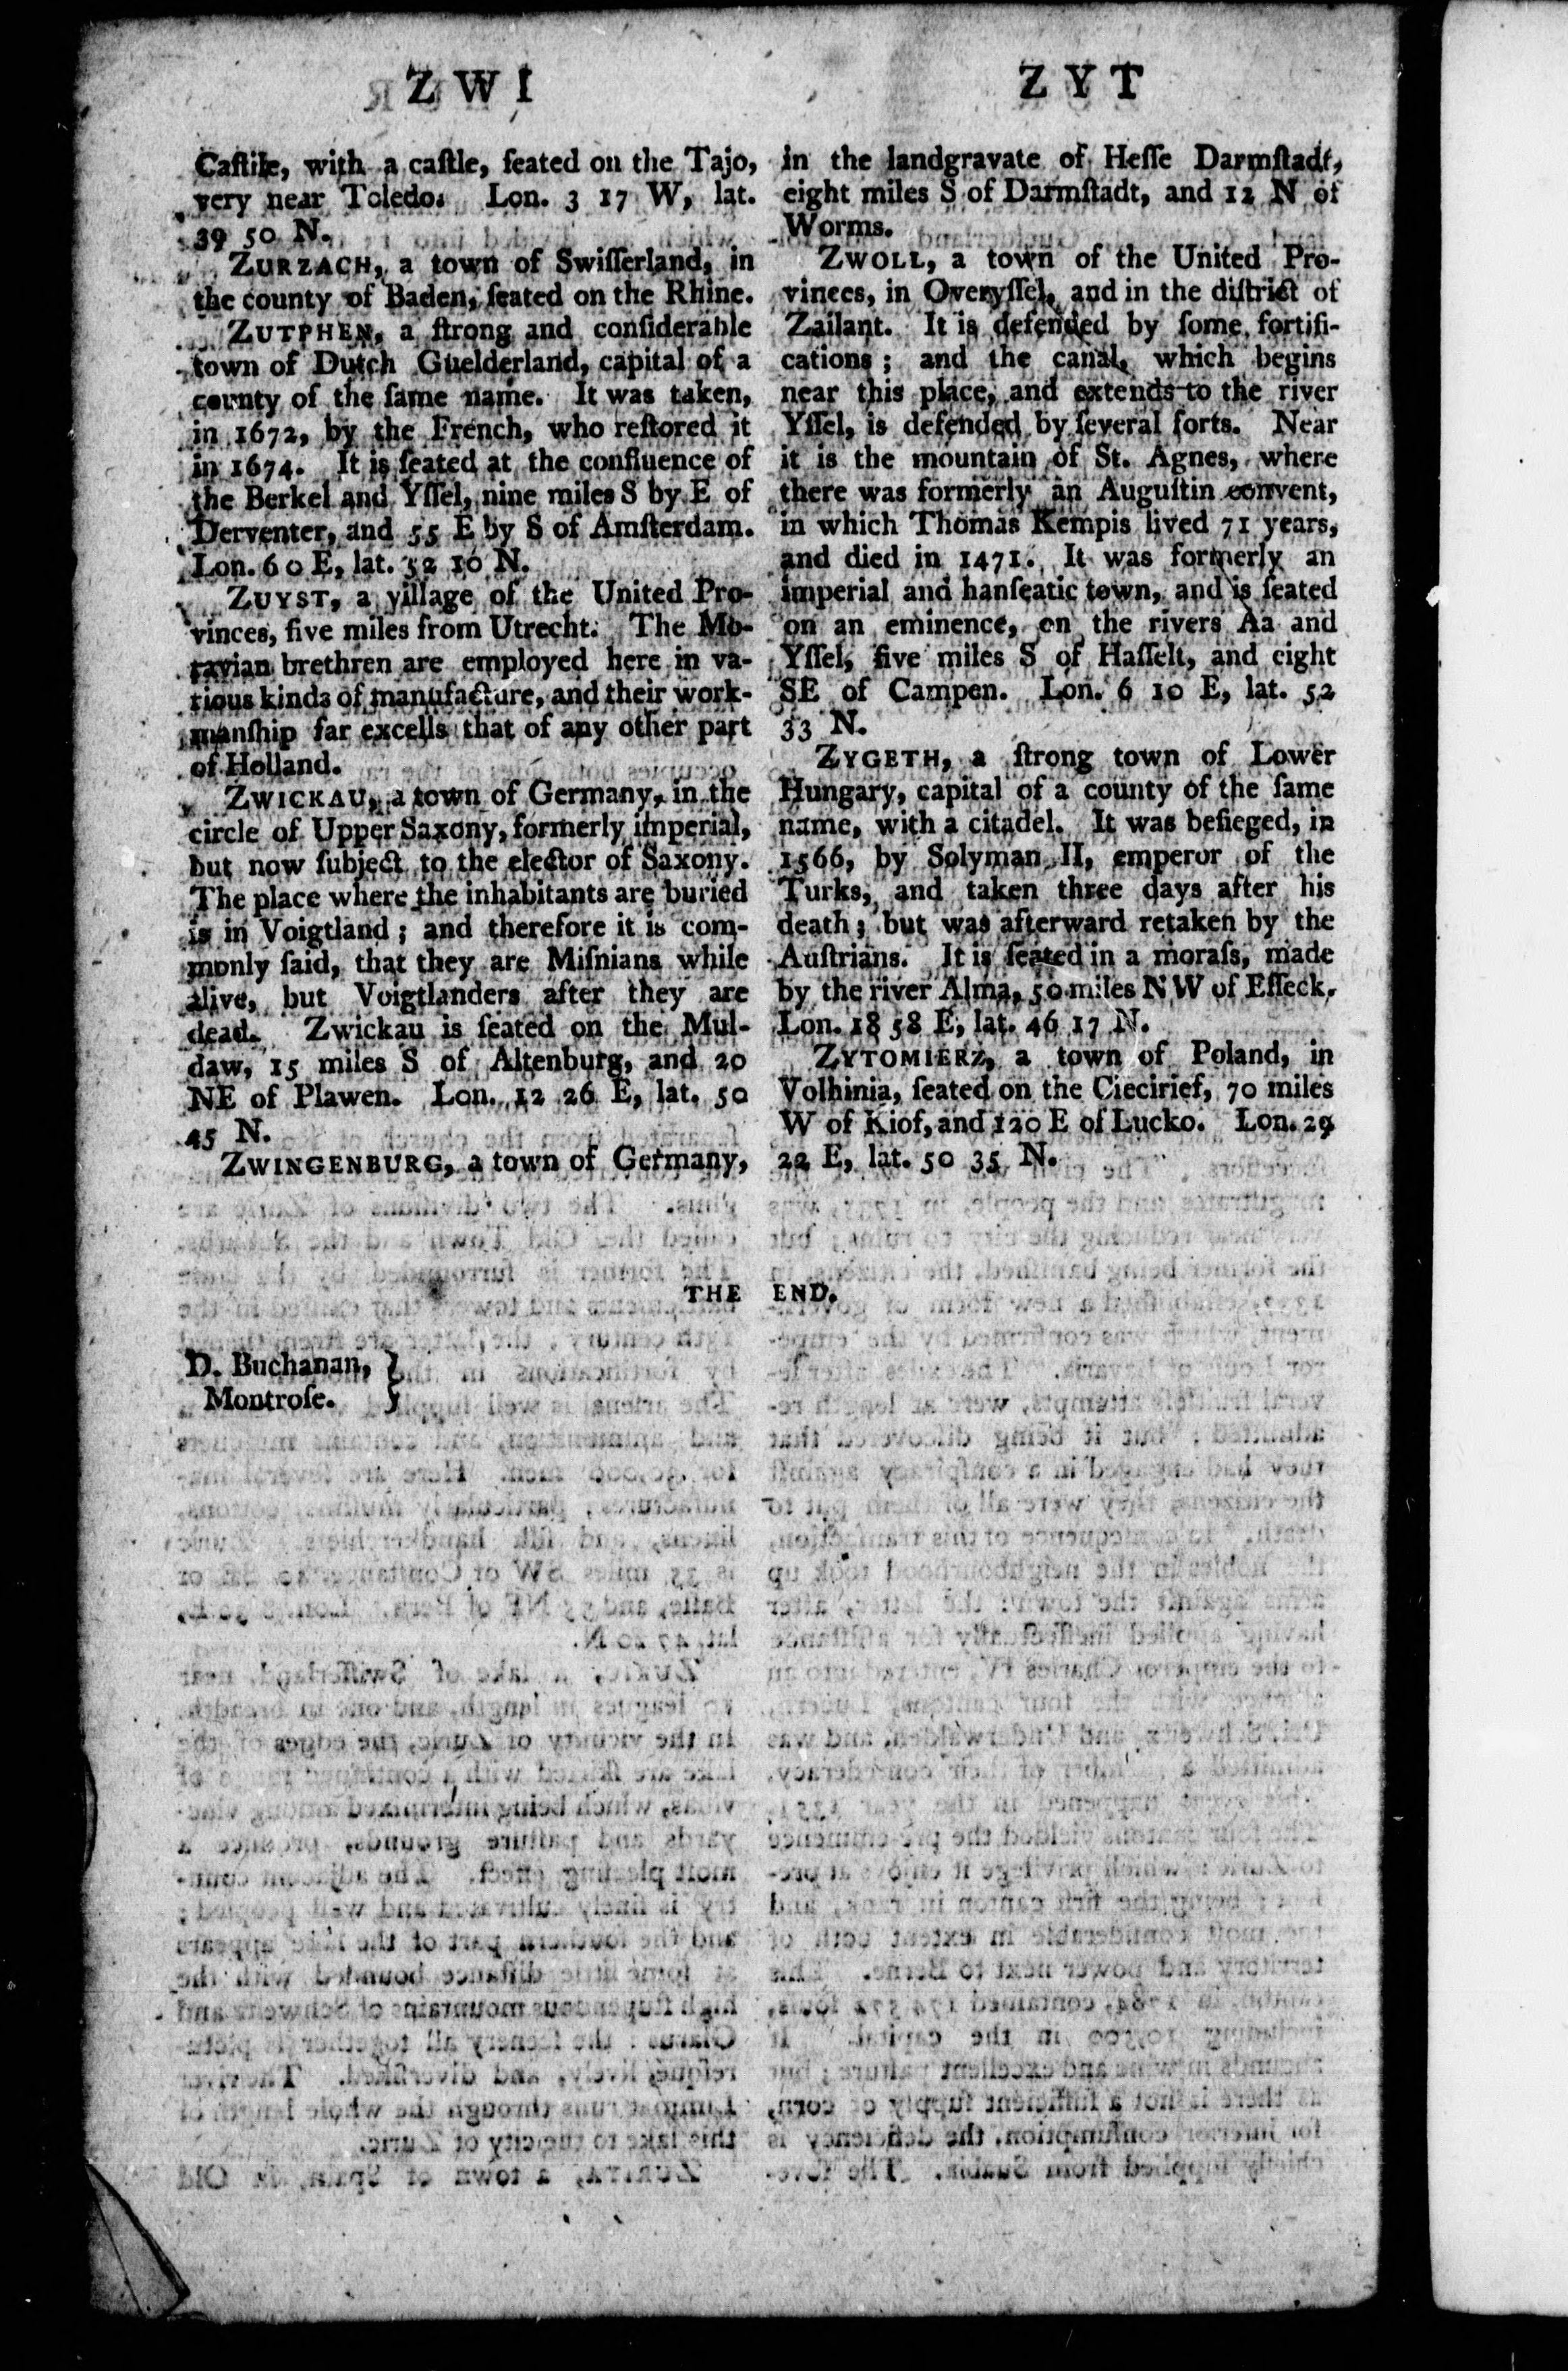 ZWI
Caſtile, with a caſtle, ſeated on the Tajo,
very near Toledo. Lon. 3 17 W, lat.
39 50 N.
ZURZACH, a town of Swiſſerland, in
the county of Baden, ſeated on the Rhine.
ZUTPHEN, a ſtrong and conſiderable
town of Dutch Guelderland, capital of a
county of the ſame name. It was taken,
in 1672, by the French, who reſtored it
in 1674. It is ſeated at the confluence of
the Berkel and Yſſel, nine miles S by E of
Derventer, and 55 E by S of Amſterdam.
Lon. 6 0 E, lat. 52 10 N.
ZUYST, a village of the United Pro-
vinces, five miles from Utrecht. The Mo-
ravian brethren are employed here in va-
rious kinds of manufacture, and their work-
manſhip far excells that of any other part
of Holland.
ZWICKAU, a town of Germany, in the
circle of Upper Saxony, formerly imperial,
but now ſubject to the elector of Saxony.
The place where the inhabitants are buried
is in Voigtland; and therefore it is com-
monly ſaid, that they are Miſnians while
alive, but Voigtlanders after they are
dead. Zwickau is ſeated on the Mul-
daw, 15 miles S of Altenburg, and 20
NE of Plawen. Lon. 12 26 E, lat. 50
45 N.
ZWINGENBURG, a town of Germany,
ZYT
in the landgravate of Heſſe Darmſtadt,
eight miles S of Darmſtadt, and 12 N of
Worms.
ZWOLL, a town of the United Pro-
vinces, in Overyſſel, and in the diſtrict of
Zailant. It is defended by ſome fortifi-
cations; and the canal, which begins
near this place, and extends to the river
Yſſel, is defended by ſeveral forts. Near
it is the mountain of St. Agnes, where
there was formerly an Auguſtin convent,
in which Thomas Kempis lived 71 years,
and died in 1471. It was formerly an
imperial and hanſeatic town, and is ſeated
on an eminence, on the rivers Aa and
Yſſel, five miles S of Haſſelt, and eight
SE of Campen. Lon. 6 10 E, lat. 52
33 N.
ZYGETH, a ſtrong town of Lower
Hungary, capital of a county of the ſame
name, with a citadel. It was beſieged, in
1566, by Solyman II, emperor of the
Turks, and taken three days after his
death; but was afterward retaken by the
Auſtrians. It is ſeated in a moraſs, made
by the river Alma, 50 miles NW of Eſſeck.
Lon. 18 58 E, lat. 46 17 N.
ZYTOMIERZ, a town of Poland, in
Volhinia, ſeated on the Ciecirief, 70 miles
W of Kiof, and 120 E of Lucko. Lon. 29
22 E, lat. 50 35 N.
THE END.
D. Buchanan, }
Montroſe.